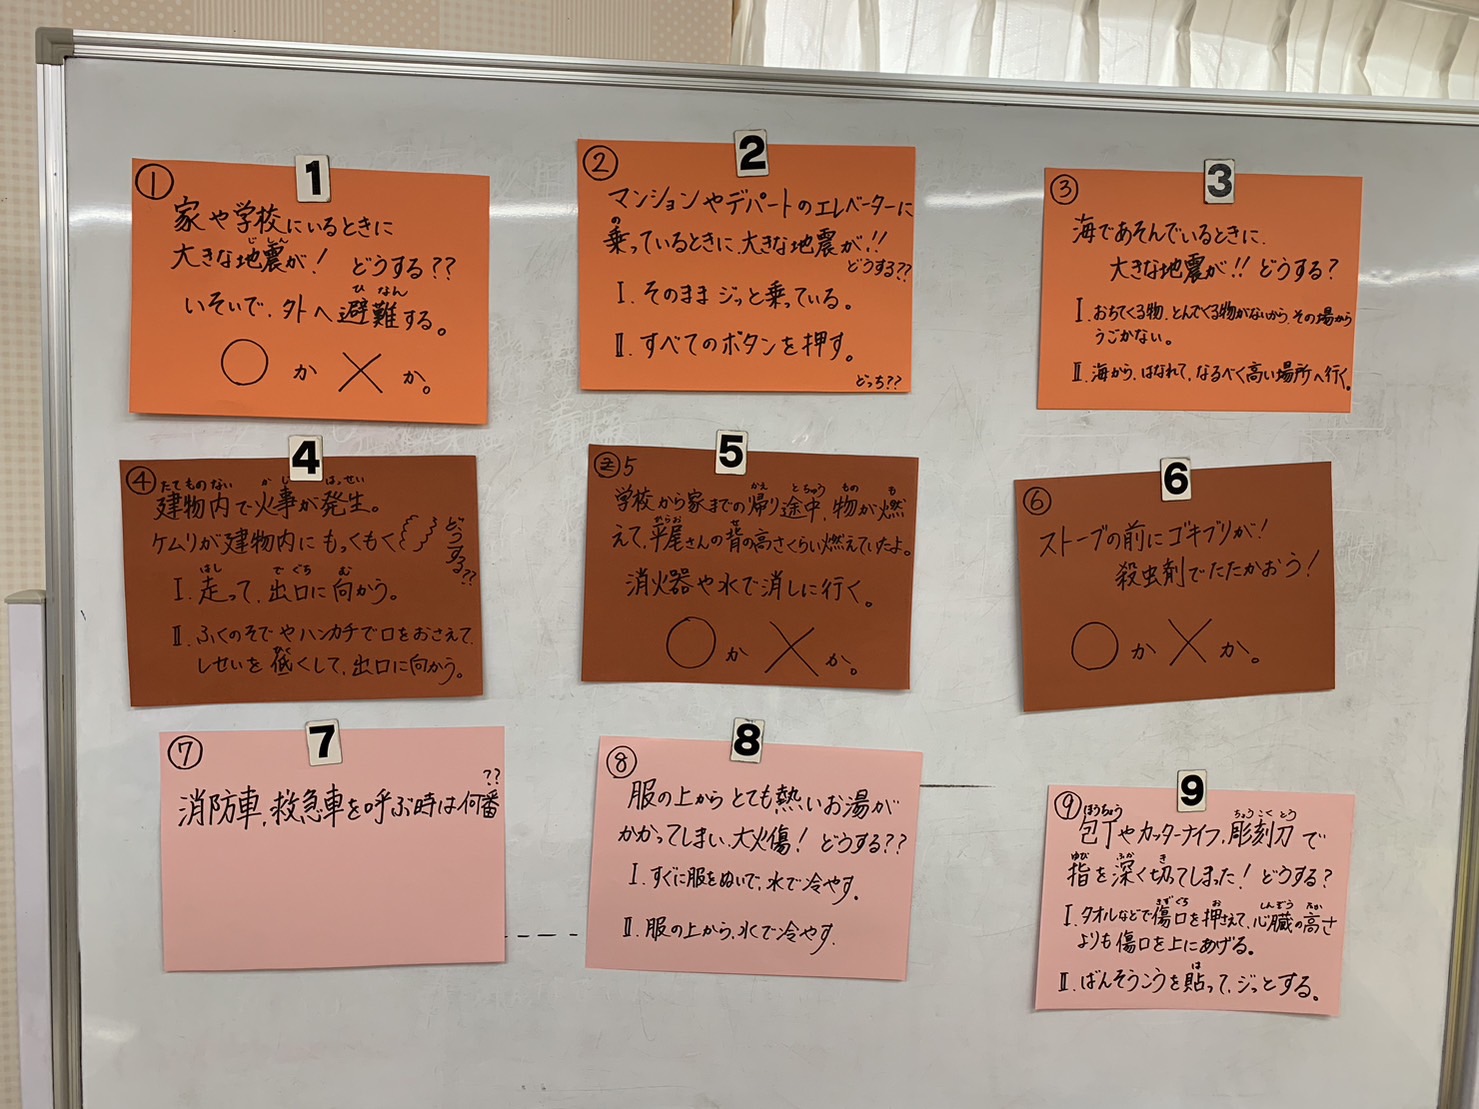 1
①
家や学校にいるときに
大きな地震が！ どうする??
じしん
いそいで、外へ避難する。
ひなん
○か×か。
2
②
マンションやデパートのエレベーターに
乗っているときに、大きな地震が!!
の
どうする??
Ⅰ. そのままジッと乗っている。
Ⅱ. すべてのボタンを押す。
どっち??
3
③
海であそんでいるときに、
大きな地震が!! どうする?
Ⅰ. おちてくる物、とんでくる物がないから、その場から
うごかない。
Ⅱ. 海から、はなれて、なるべく高い場所へ行く。
4
④
たてものない かじ はっせい
建物内で火事が発生。
ケムリが建物内にもっくもく
どうする??
はし でぐち む
Ⅰ. 走って、出口に向かう。
Ⅱ. ふくのそでやハンカチで口をおさえて、
ひく
しせいを低くして、出口に向かう。
5
5
かえ とちゅう もの も
学校から家までの帰り途中、物が燃
えて、平尾さんの背の高さくらい燃えていたよ。
ひらお せ
消火器や水で消しに行く。
○か×か。
6
⑥
ストーブの前にゴキブリが！
殺虫剤でたたかおう！
○か×か。
7
⑦
消防車、救急車を呼ぶ時は何番
??
8
⑧
服の上からとても熱いお湯が
かかってしまい、大火傷！ どうする??
Ⅰ. すぐに服をぬいで、水で冷やす。
Ⅱ. 服の上から、水で冷やす.
9
⑨
ほうちょう ちょうこくとう
包丁やカッターナイフ、彫刻刀で
ゆび ふか き
指を深く切ってしまった！ どうする?
きずぐち お しんぞう たか
Ⅰ. タオルなどで傷口を押さえて、心臓の高さ
よりも傷口を上にあげる。
は
Ⅱ. ばんそうこうを貼って、ジッとする。